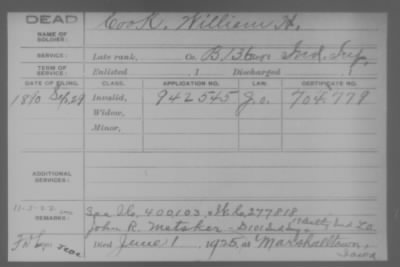 DEAD
NAME OF SOLDIER: Cook, William H.
SERVICE: Late rank, Co. B, 136 Ind. Inf,
TERM OF SERVICE: Enlisted , 1 Discharged , 1
DATE OF FILING. CLASS. APPLICATION NO. LAW. CERTIFICATE NO.
1890 Sep. 29 Invalid, 942545 g.o. 704,779
Widow,
Minor,
ADDITIONAL SERVICES:
11-3-22
REMARKS: See 400,103, 277818
John R. Metsker - D101
Died June 1, 1925, at Marshalltown, Iowa